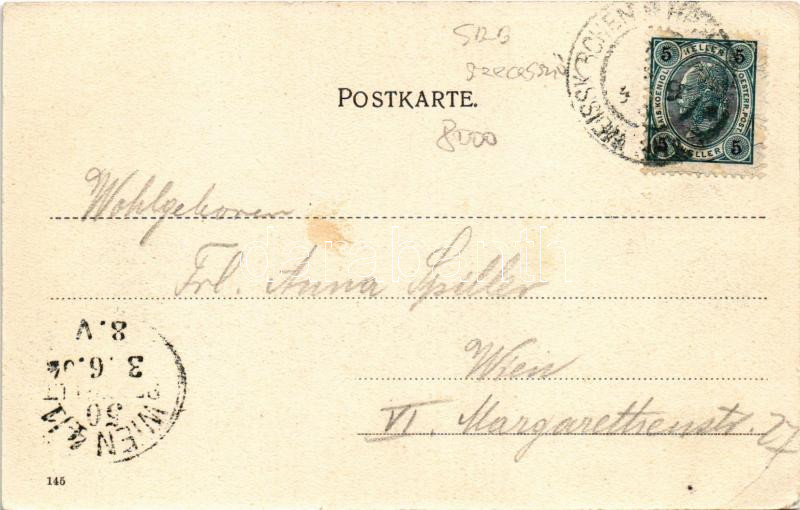 SRB
szecesszió
POSTKARTE.
8000
WEISSKIRCHEN
5 HELLER 5
KAIS. KOENIGL. OESTERR. POST
5 HELLER 5
Wohlgeboren
Frl. Anna Spiller
Wien
VI. Margarethenstr. 27
8.V
3.6.
WIEN
50
145
darabanth